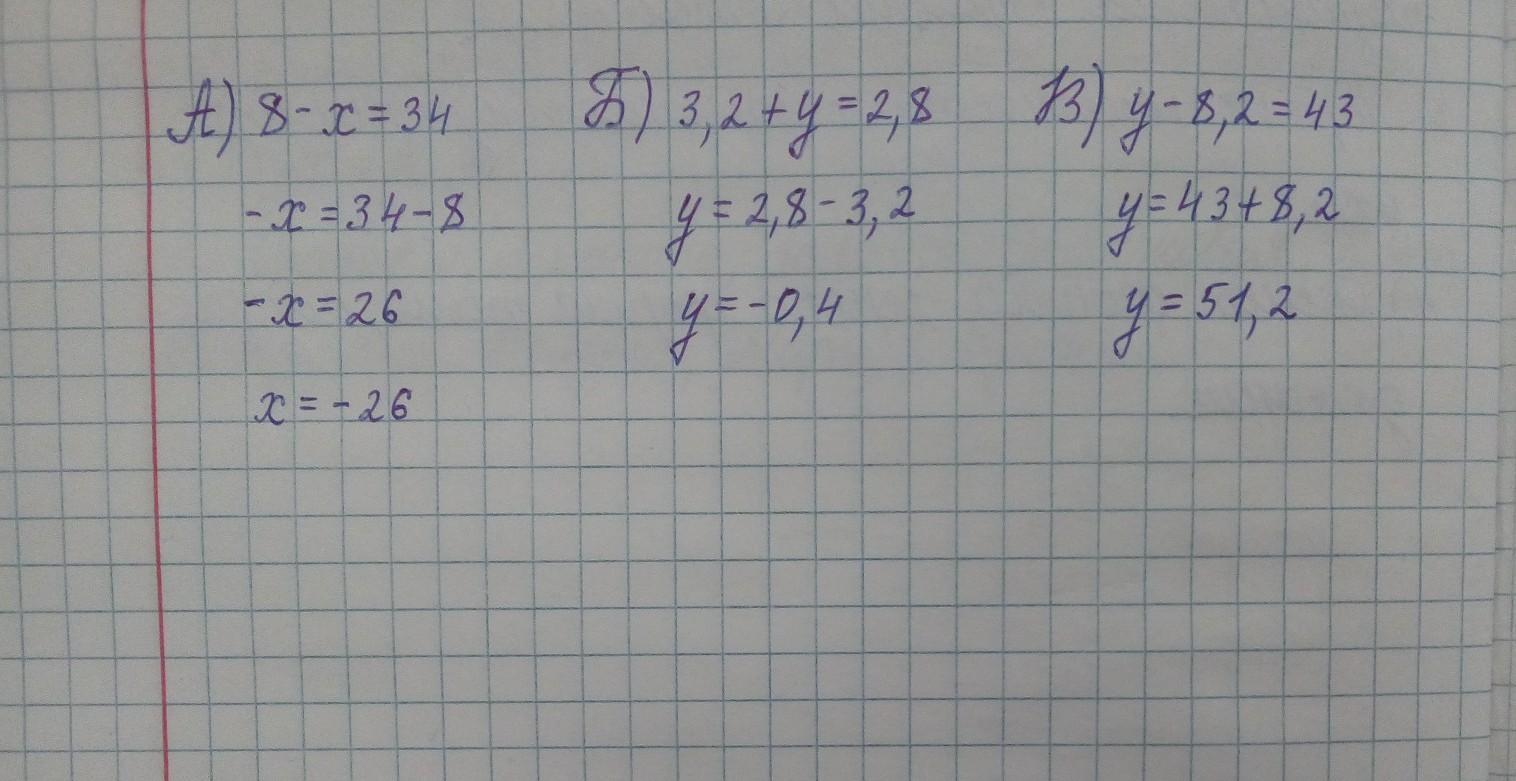 А) 8 - x = 34
- x = 34 - 8
- x = 26
x = - 26
Б) 3,2 + y = 2,8
y = 2,8 - 3,2
y = - 0,4
В) y - 8,2 = 43
y = 43 + 8,2
y = 51,2